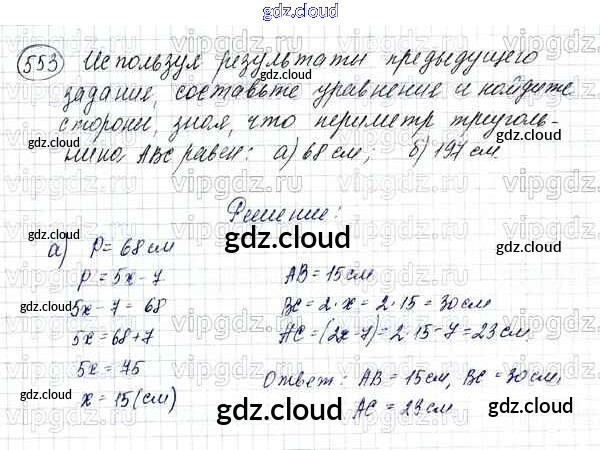 gdz.cloud
553 Используя результаты предыдущего
задания, составьте уравнение и найдите
стороны, зная, что периметр треуголь-
ника ABC равен: а) 68 см; б) 197 см.
Решение:
а) P = 68 см
P = 5x - 7
5x - 7 = 68
5x = 68 + 7
5x = 75
x = 15 (см)
AB = 15 см
BC = 2 · x = 2 · 15 = 30 см
AC = (2x - 7) = 2 · 15 - 7 = 23 см.
Ответ: AB = 15 см, BC = 30 см,
AC = 23 см.
gdz.cloud
gdz.cloud
gdz.cloud
gdz.cloud
vipgdz.com